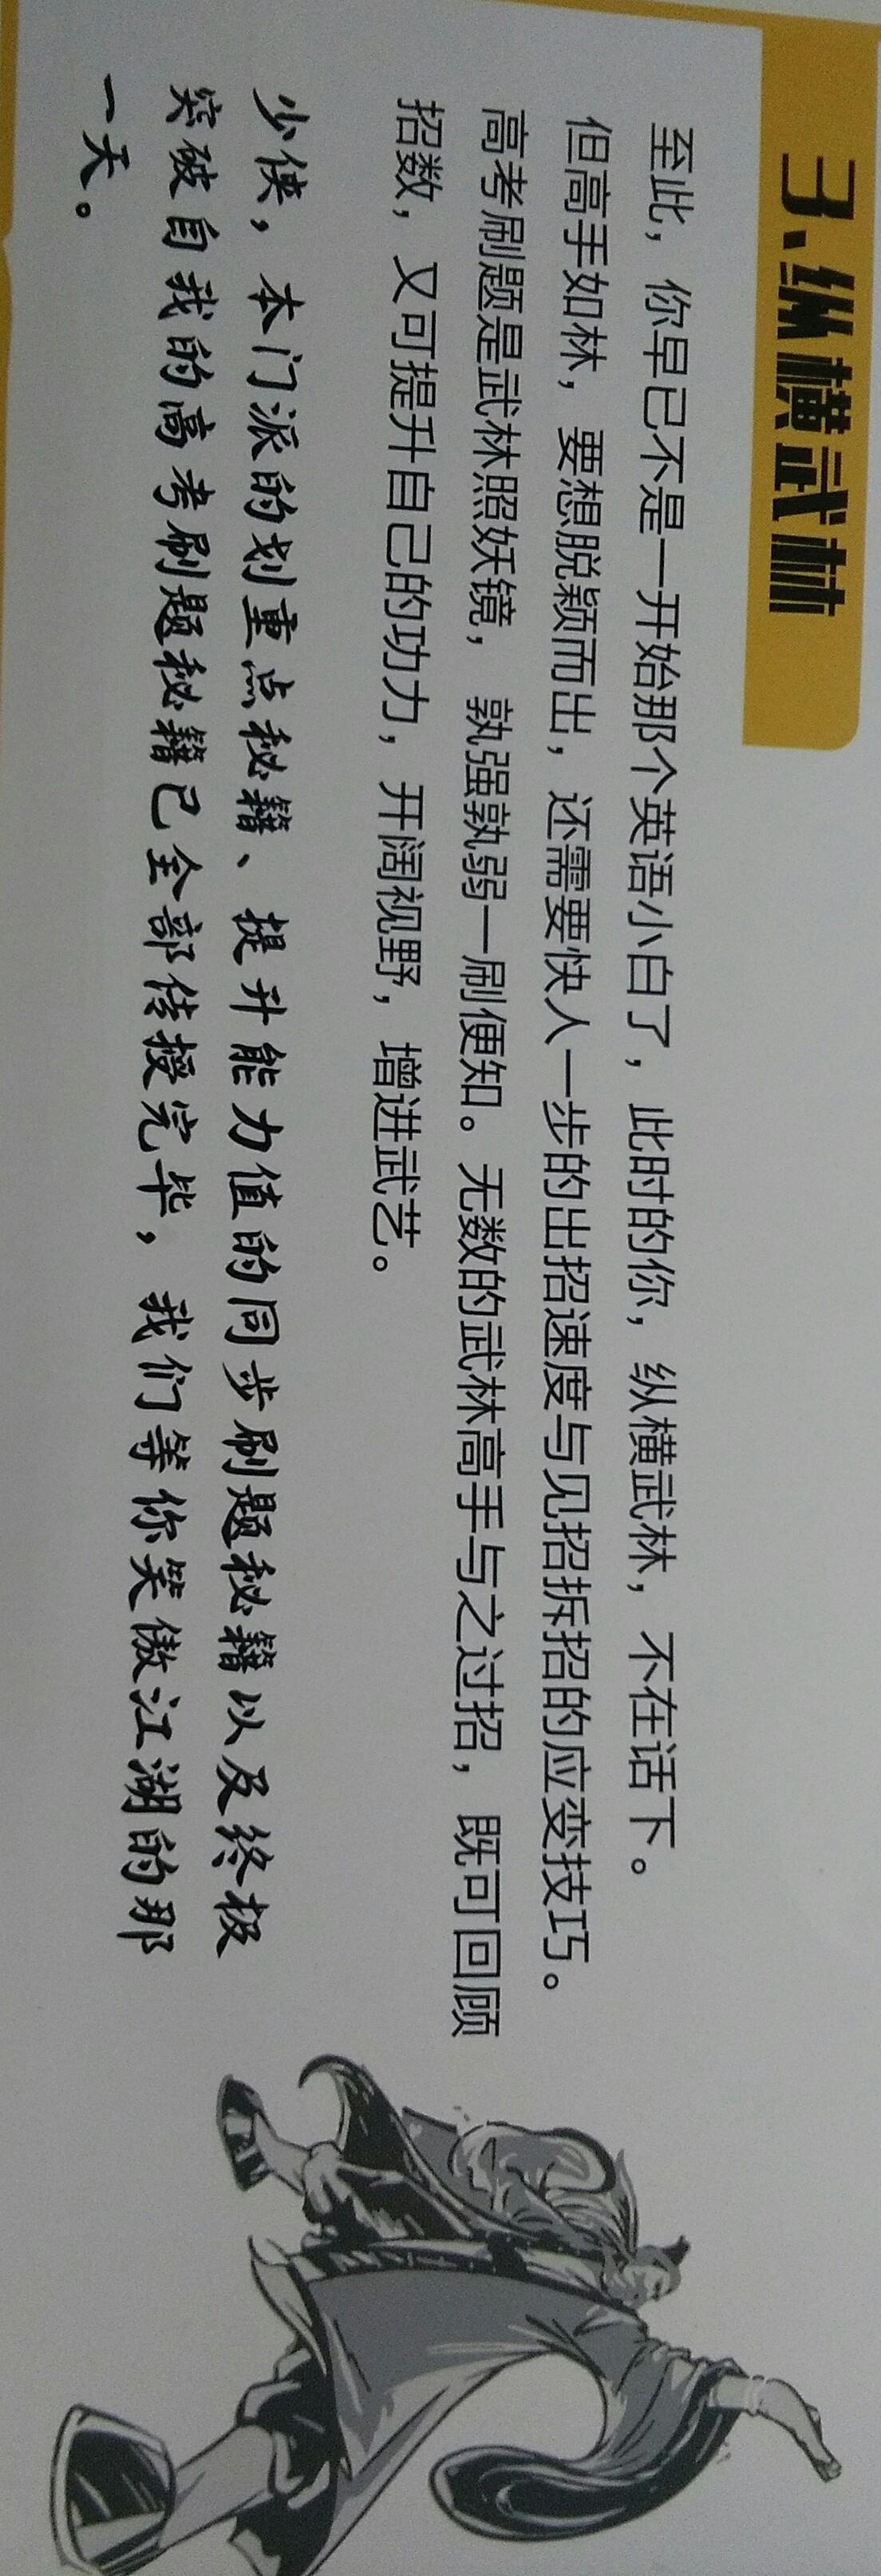 3、纵横武林
至此，你早已不是一开始那个英语小白了，此时的你，纵横武林，不在话下。
但高手如林，要想脱颖而出，还需要快人一步的出招速度与见招拆招的应变技巧。
高考刷题是武林照妖镜，孰强孰弱一刷便知。无数的武林高手与之过招，既可回顾
招数，又可提升自己的功力，开阔视野，增进武艺。
少侠，本门派的划重点秘籍、提升能力值的同步刷题秘籍以及终极
突破自我的高考刷题秘籍已全部传授完毕，我们等你笑傲江湖的那
一天。